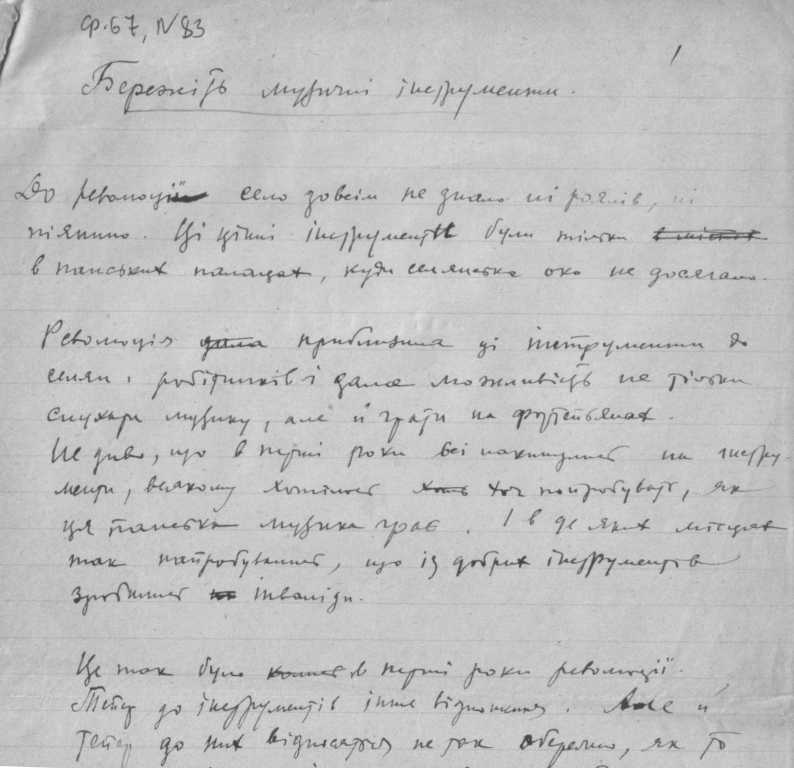 ф.67, N83
1
Бережіть музичні інструменти.
До революції село зовсім не знало ні роялів, ні
піяніно. Ці цінні інструменти були тільки в містах
в панських палацах, куди селянське око не досягало.
Революція дала приблизила ці інструменти до
селян і робітників і дала можливість не тільки
слухати музику, але й грати на фортепьянах.
Не диво, що в перші роки всі накинулися на інстру-
менти, всякому хотілося хоть хоч попробувать, як
ця панська музика грає. І в де яких місцях
так напробувалися, що із добрих інструментів
зробилися інваліди.
Це так було в перші роки революції.
Тепер до інструментів інше відношення. Але й
тепер до них відносяться не так обережно, як то